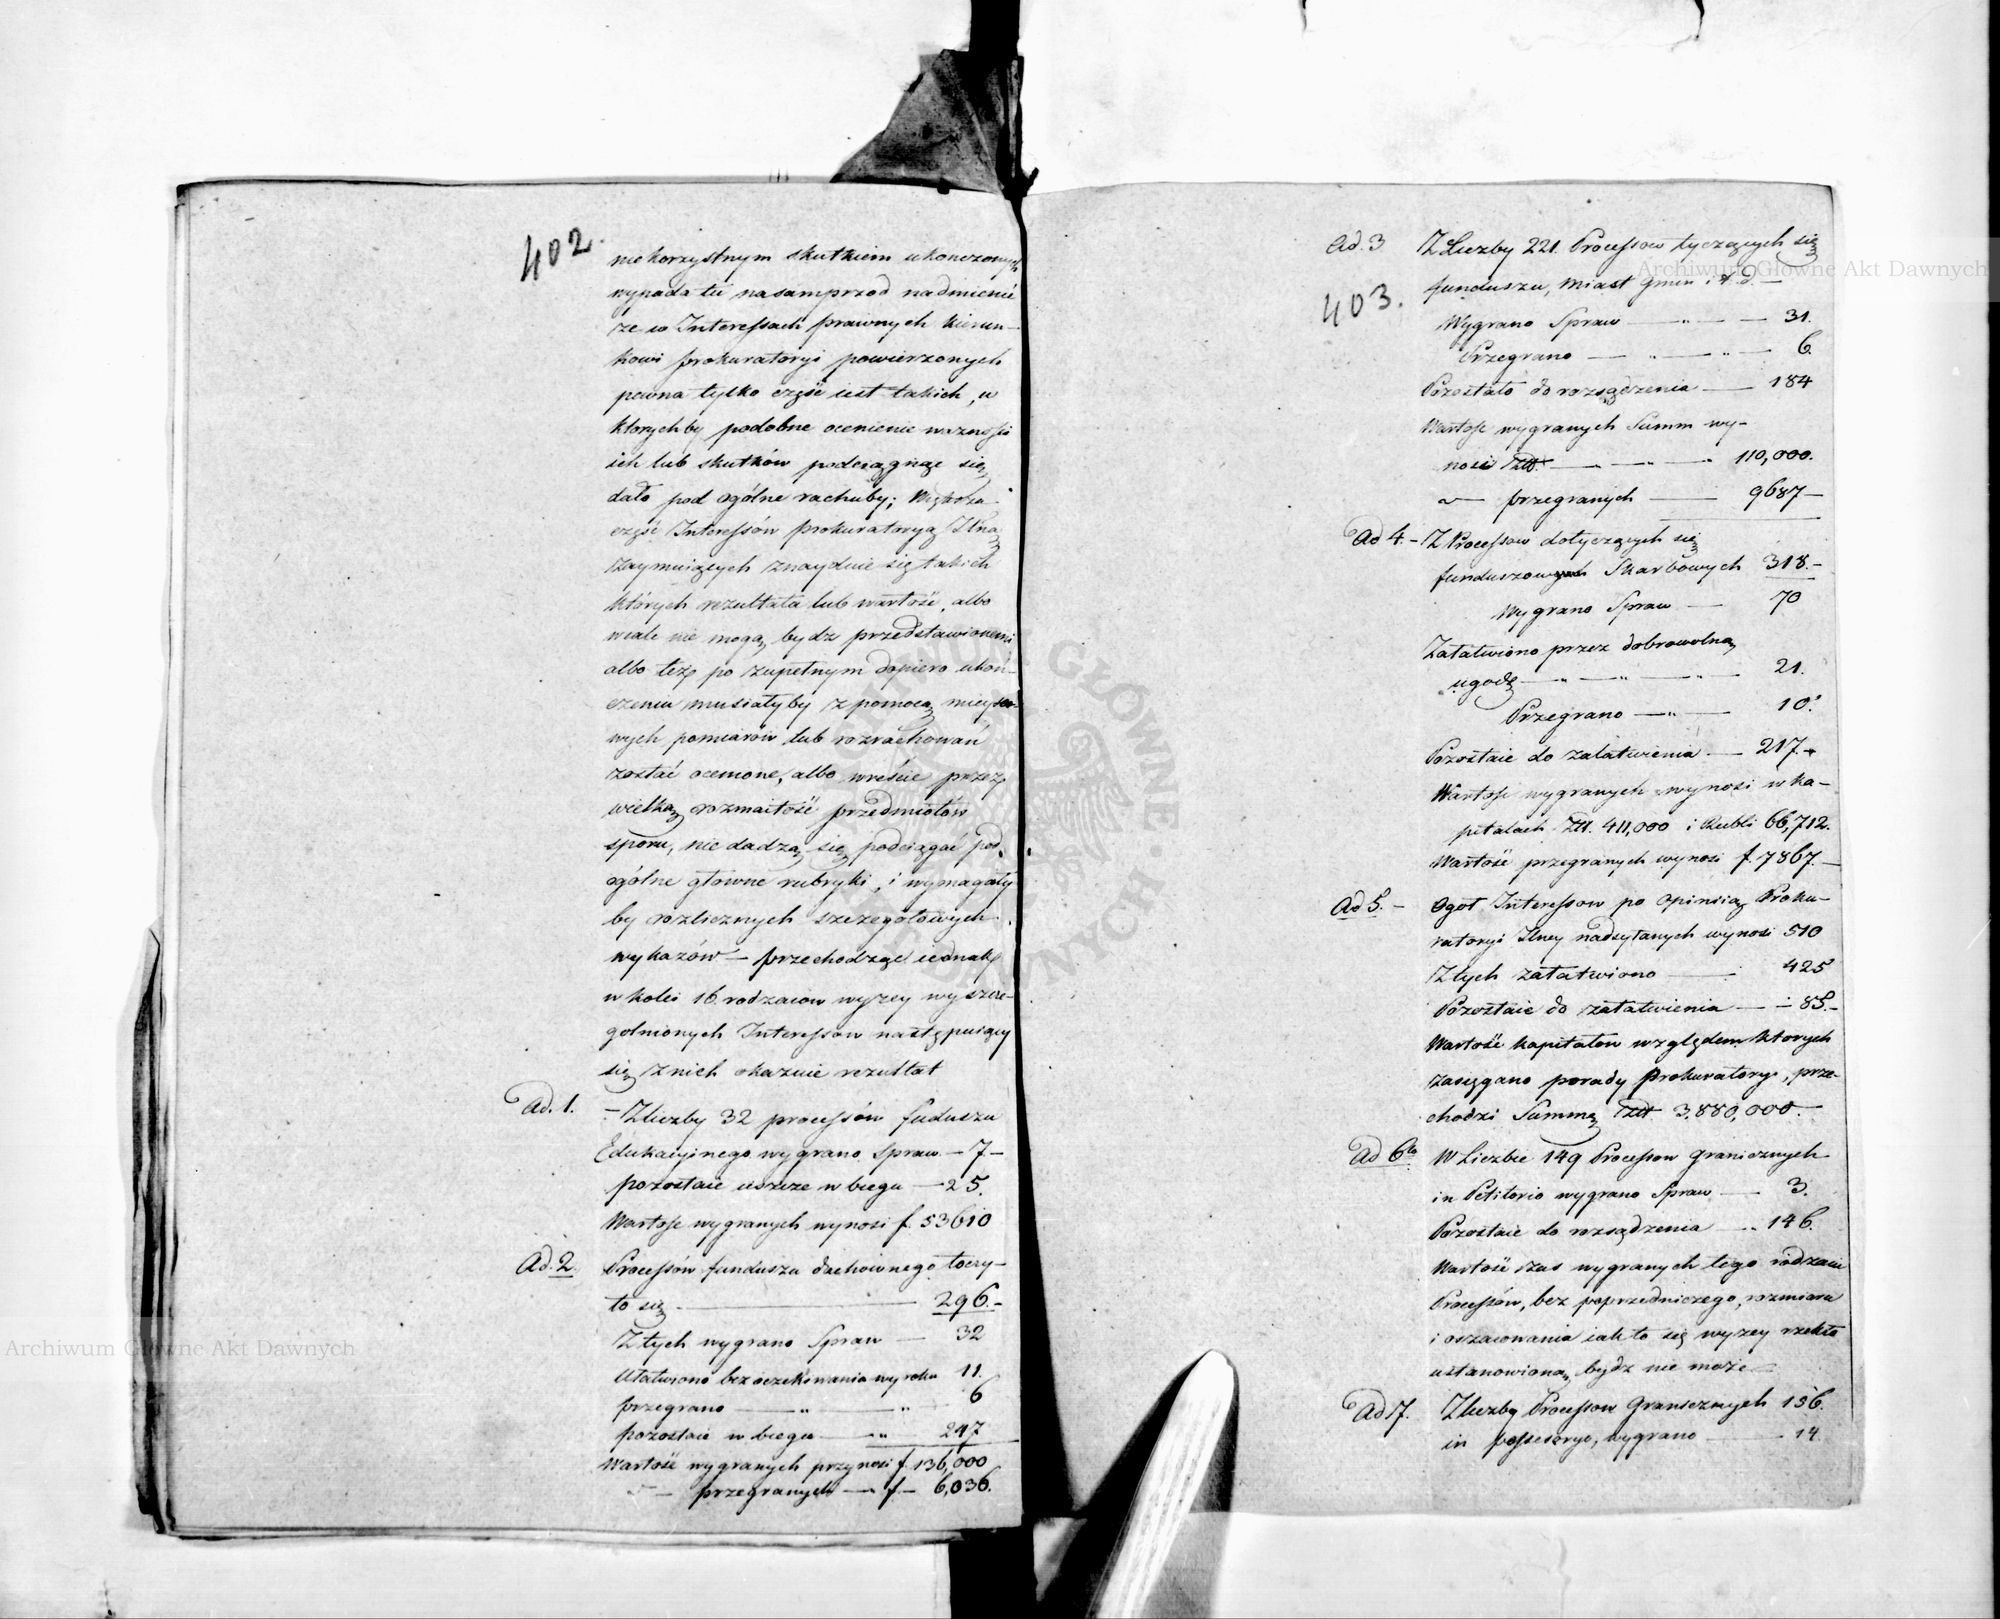 402.
niekorzystnym skutkiem ukonczonych
wypada tu nasamprzod nadmienić
że w Interessach prawnych kierun-
kowi prokuratoryi powierzonych
pewna tylko część iest takich, w
ktorychby podobne ocenienie ważności
ich lub skutków podciągnąć się
dało pod ogólne rachuby; Większa
część Interessów prokuratoryą Jlną
zaymuiących znayduie się takich
których rezultata lub wartość, albo
wcale nie mogą bydz przedstawionemi
albo też po zupełnym dopiero ukoń-
czeniu musiałyby z pomocą mieysco-
wych pomiarów lub rozrachowań
zostać ocenione, albo wreście przez
wielką rozmaitość przedmiotów
sporu, nie dadzą się podciągać pod
ogólne główne rubryki, i wymagały
by rozlicznych szczegołowych
wykazów — przechodząc iednak
w kolei 16. rodzaiow wyzey wyszcze-
golnionych Interessow następuiący
się z nich okazuie rezultat
Ad. 1. — Z liczby 32 processów fuduszu
Edukacyinego wygrano spraw — 7 —
pozostaie ieszcze w biegu — 25.
Wartość wygranych wynosi f. 53610
Ad. 2. Processów funduszu duchownego toczy-
ło się — 296. —
Z tych wygrano Spraw — 32
Ułatwiono bez oczekiwania wyroku 11.
przegrano — " — " 6
pozostaie w biegu — " 247
Wartość wygranych przynosi f. 136,000
— przegranych — f. — 6,036.
Ad. 3 Z Liczby 221. Processow tyczących się
403.
funduszu, Miast Gmin i t. d. —
Wygrano Spraw — " — — 31.
Przegrano — " — " — 6.
Pozostało do rozsądzenia — 184
Wartość wygranych Summ wy-
nosi Złł. — " — " 110,000.
— przegranych — 9687 —
Ad 4. — Z Processow dotyczących się
funduszow Skarbowych 318. —
Wygrano Spraw — 70
Załatwiono przez dobrowolną
ugodę — " — " — " — 21.
Przegrano — " — 10.
Pozostaie do załatwienia — 217.
Wartość wygranych wynosi w ka-
pitałach Złł. 411,000 i Rubli 66,712.
Wartość przegranych wynosi f. 7867. —
Ad 5. — Ogoł Interessow po Opinią Proku-
ratoryi Jlney nadsyłanych wynosi 510
Z tych załatwiono — 425
Pozostaie do załatwienia — 85. —
Wartość kapitałow względem ktorych
zasięgano porady prokuratoryi, prze-
chodzi Summę Złł 3,880,000. —
Ad 6to W Liczbie 149 Processow Granicznych
in Petitorio wygrano Spraw — 3.
Pozostaie do rozsądzenia — " 146.
Wartość zas wygranych tego rodzaiu
Processów, bez poprzedniczego, rozmiaru
i oszacowania iak to się wyzey rzekło
ustanowioną bydz nie może —
Ad 7. Z liczby Processow Granicznych 156.
in possesoryo, wygrano — 14
Archiwum Główne Akt Dawnych
Archiwum Główne Akt Dawnych